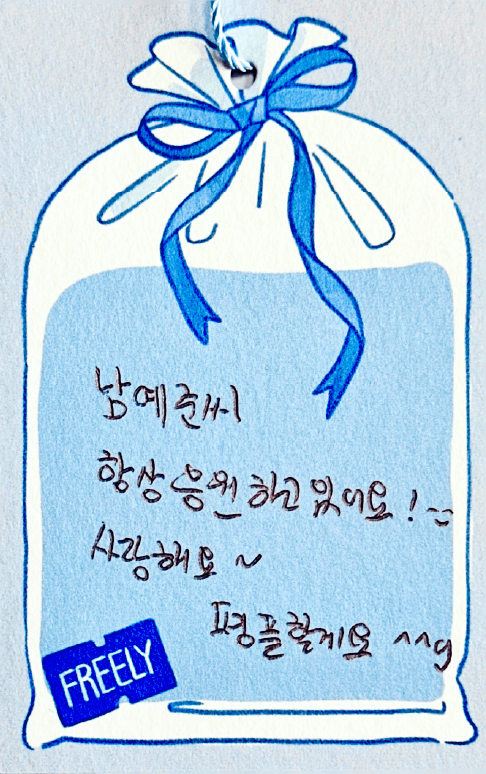 남예준씨
항상 응원하고 있어요!
사랑해요~
평플할게요 ^^g
FREELY